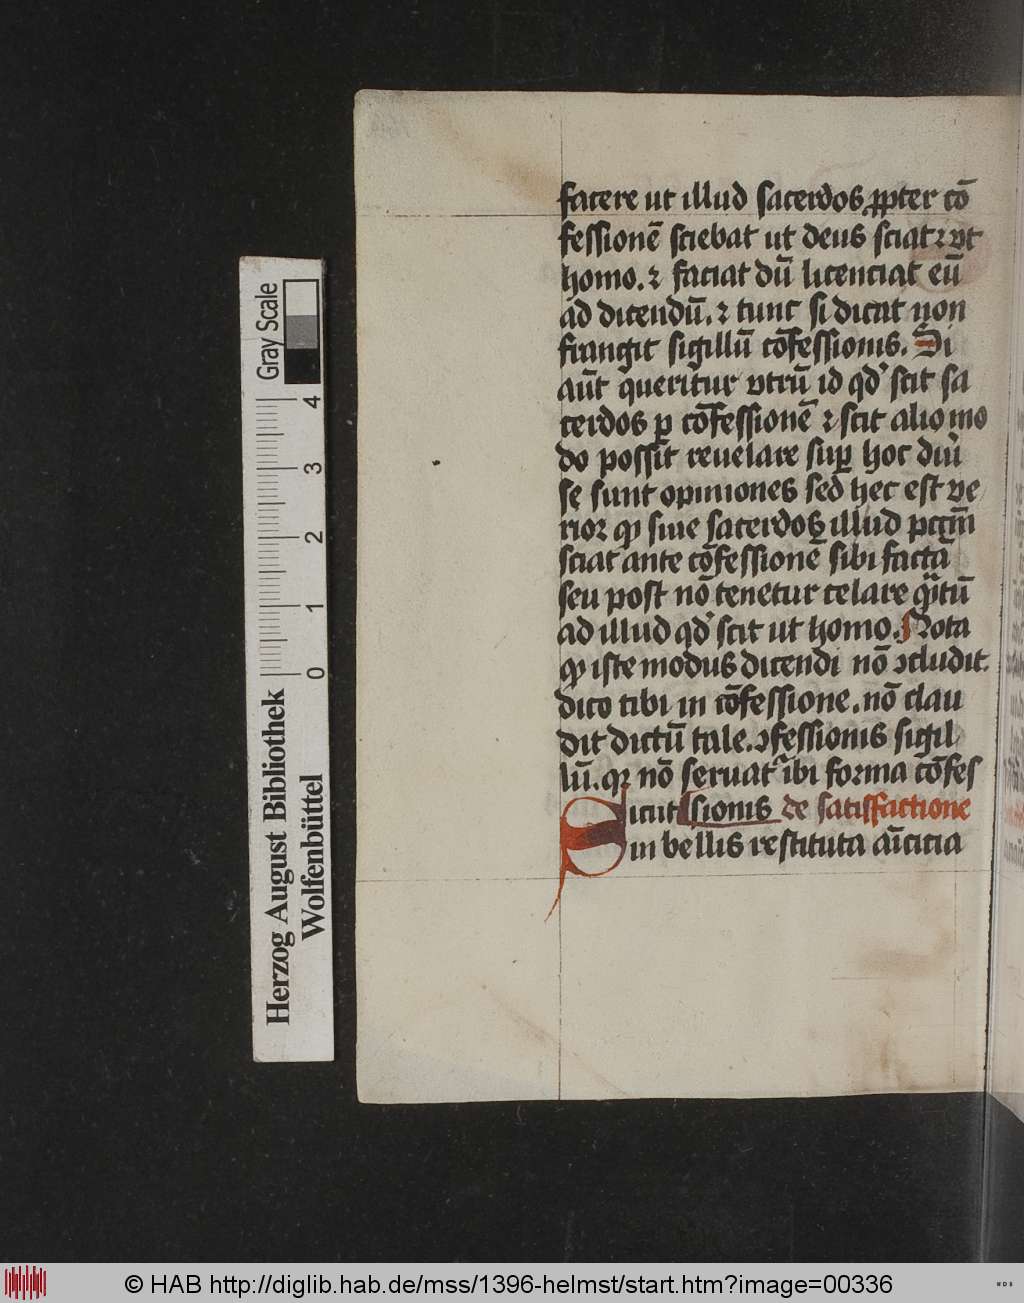 facere ut illud sacerdos ꝓpter cō
fessionē sciebat ut deus sciat ⁊ vt
homo. ⁊ faciat dū licenciat eū
ad dicendū. ⁊ tunc si dicat non
frangit sigillū cōfessionis. Si
aūt queritur vtrū id qd' scit sa
cerdos ꝑ cōfessionē ⁊ scit alio mo
do possit reuelare suꝑ hoc diū
se sunt opiniones sed hec est ve
rior ꝙ siue sacerdos illud pctm̄
sciat ante cōfessionē sibi factā
seu post nō tenetur celare qͣtū
ad illud qd' scit ut homo. Nota
ꝙ iste modus dicendi nō ↄcludit.
dico tibi in cōfessione. nō clau
dit dictū tale. ↄfessionis sigil
lū. qꝛ nō seruatᷣ ibi forma cōfes
Sicut sionis de satisfactione
in bellis restituta am̄icicia
Gray Scale
4
3
2
1
0
Herzog August Bibliothek
Wolfenbüttel
© HAB http://diglib.hab.de/mss/1396-helmst/start.htm?image=00336
WDB